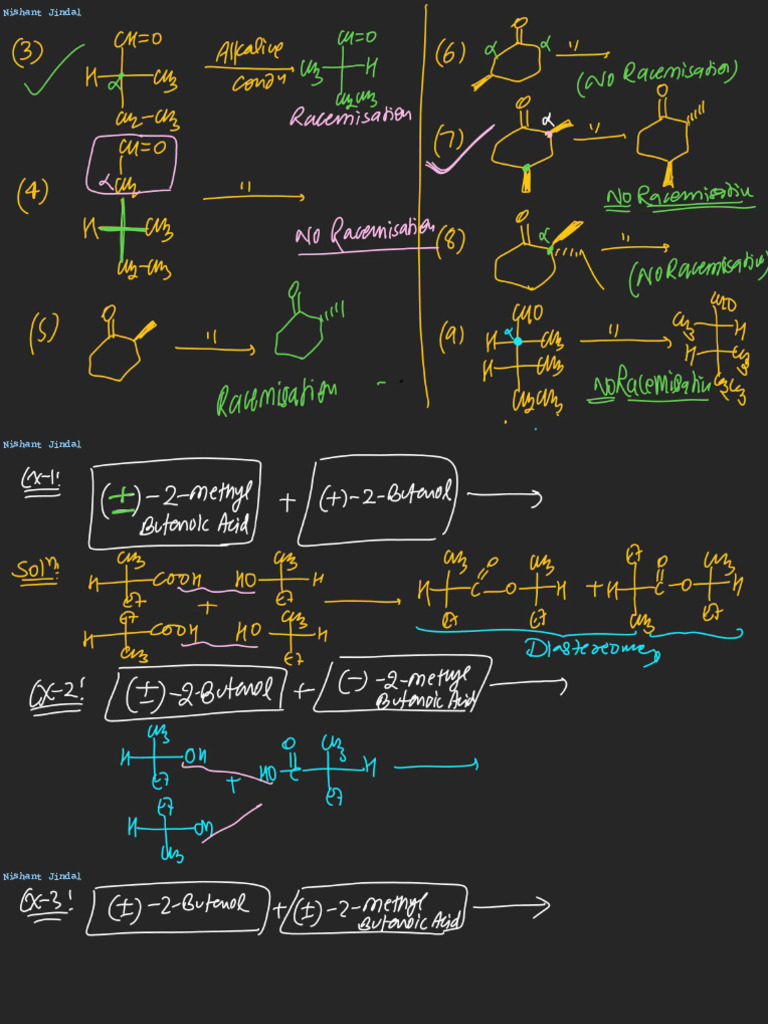 Nishant Jindal
(3)
CH=O
H
α
CH3
CH2-CH3
Alkaline
condn
CH=O
CH3
H
CH2CH3
Racemisation
(4)
CH=O
αCH2
H
CH3
CH2-CH3
"
No Racemisation
(5)
O
"
O
Racemisation
(6)
O
α
α
"
(No Racemisation)
(7)
O
α
"
O
No Racemisation
(8)
O
α
"
(No Racemisation)
(9)
CHO
α
H
CH3
H
CH3
CH2CH3
"
CHO
CH3
H
H
CH3
CH2CH3
No Racemisatin
Nishant Jindal
Ex-1:
(±)-2-methyl
Butanoic Acid
+
(+)-2-Butanol
Soln:
CH3
H
COOH
Et
HO
CH3
H
Et
+
Et
H
COOH
CH3
HO
CH3
H
Et
CH3
H
C
O
O
Et
CH3
H
Et
+
Et
H
C
O
O
CH3
CH3
H
Et
Diastereomer
Ex-2:
(±)-2-Butanol
+
(-)-2-methyl
Butanoic Acid
CH3
H
OH
Et
+
O
HO
C
CH3
H
Et
Et
H
OH
CH3
Nishant Jindal
Ex-3:
(±)-2-Butanol
+
(±)-2-methyl
Butanoic Acid